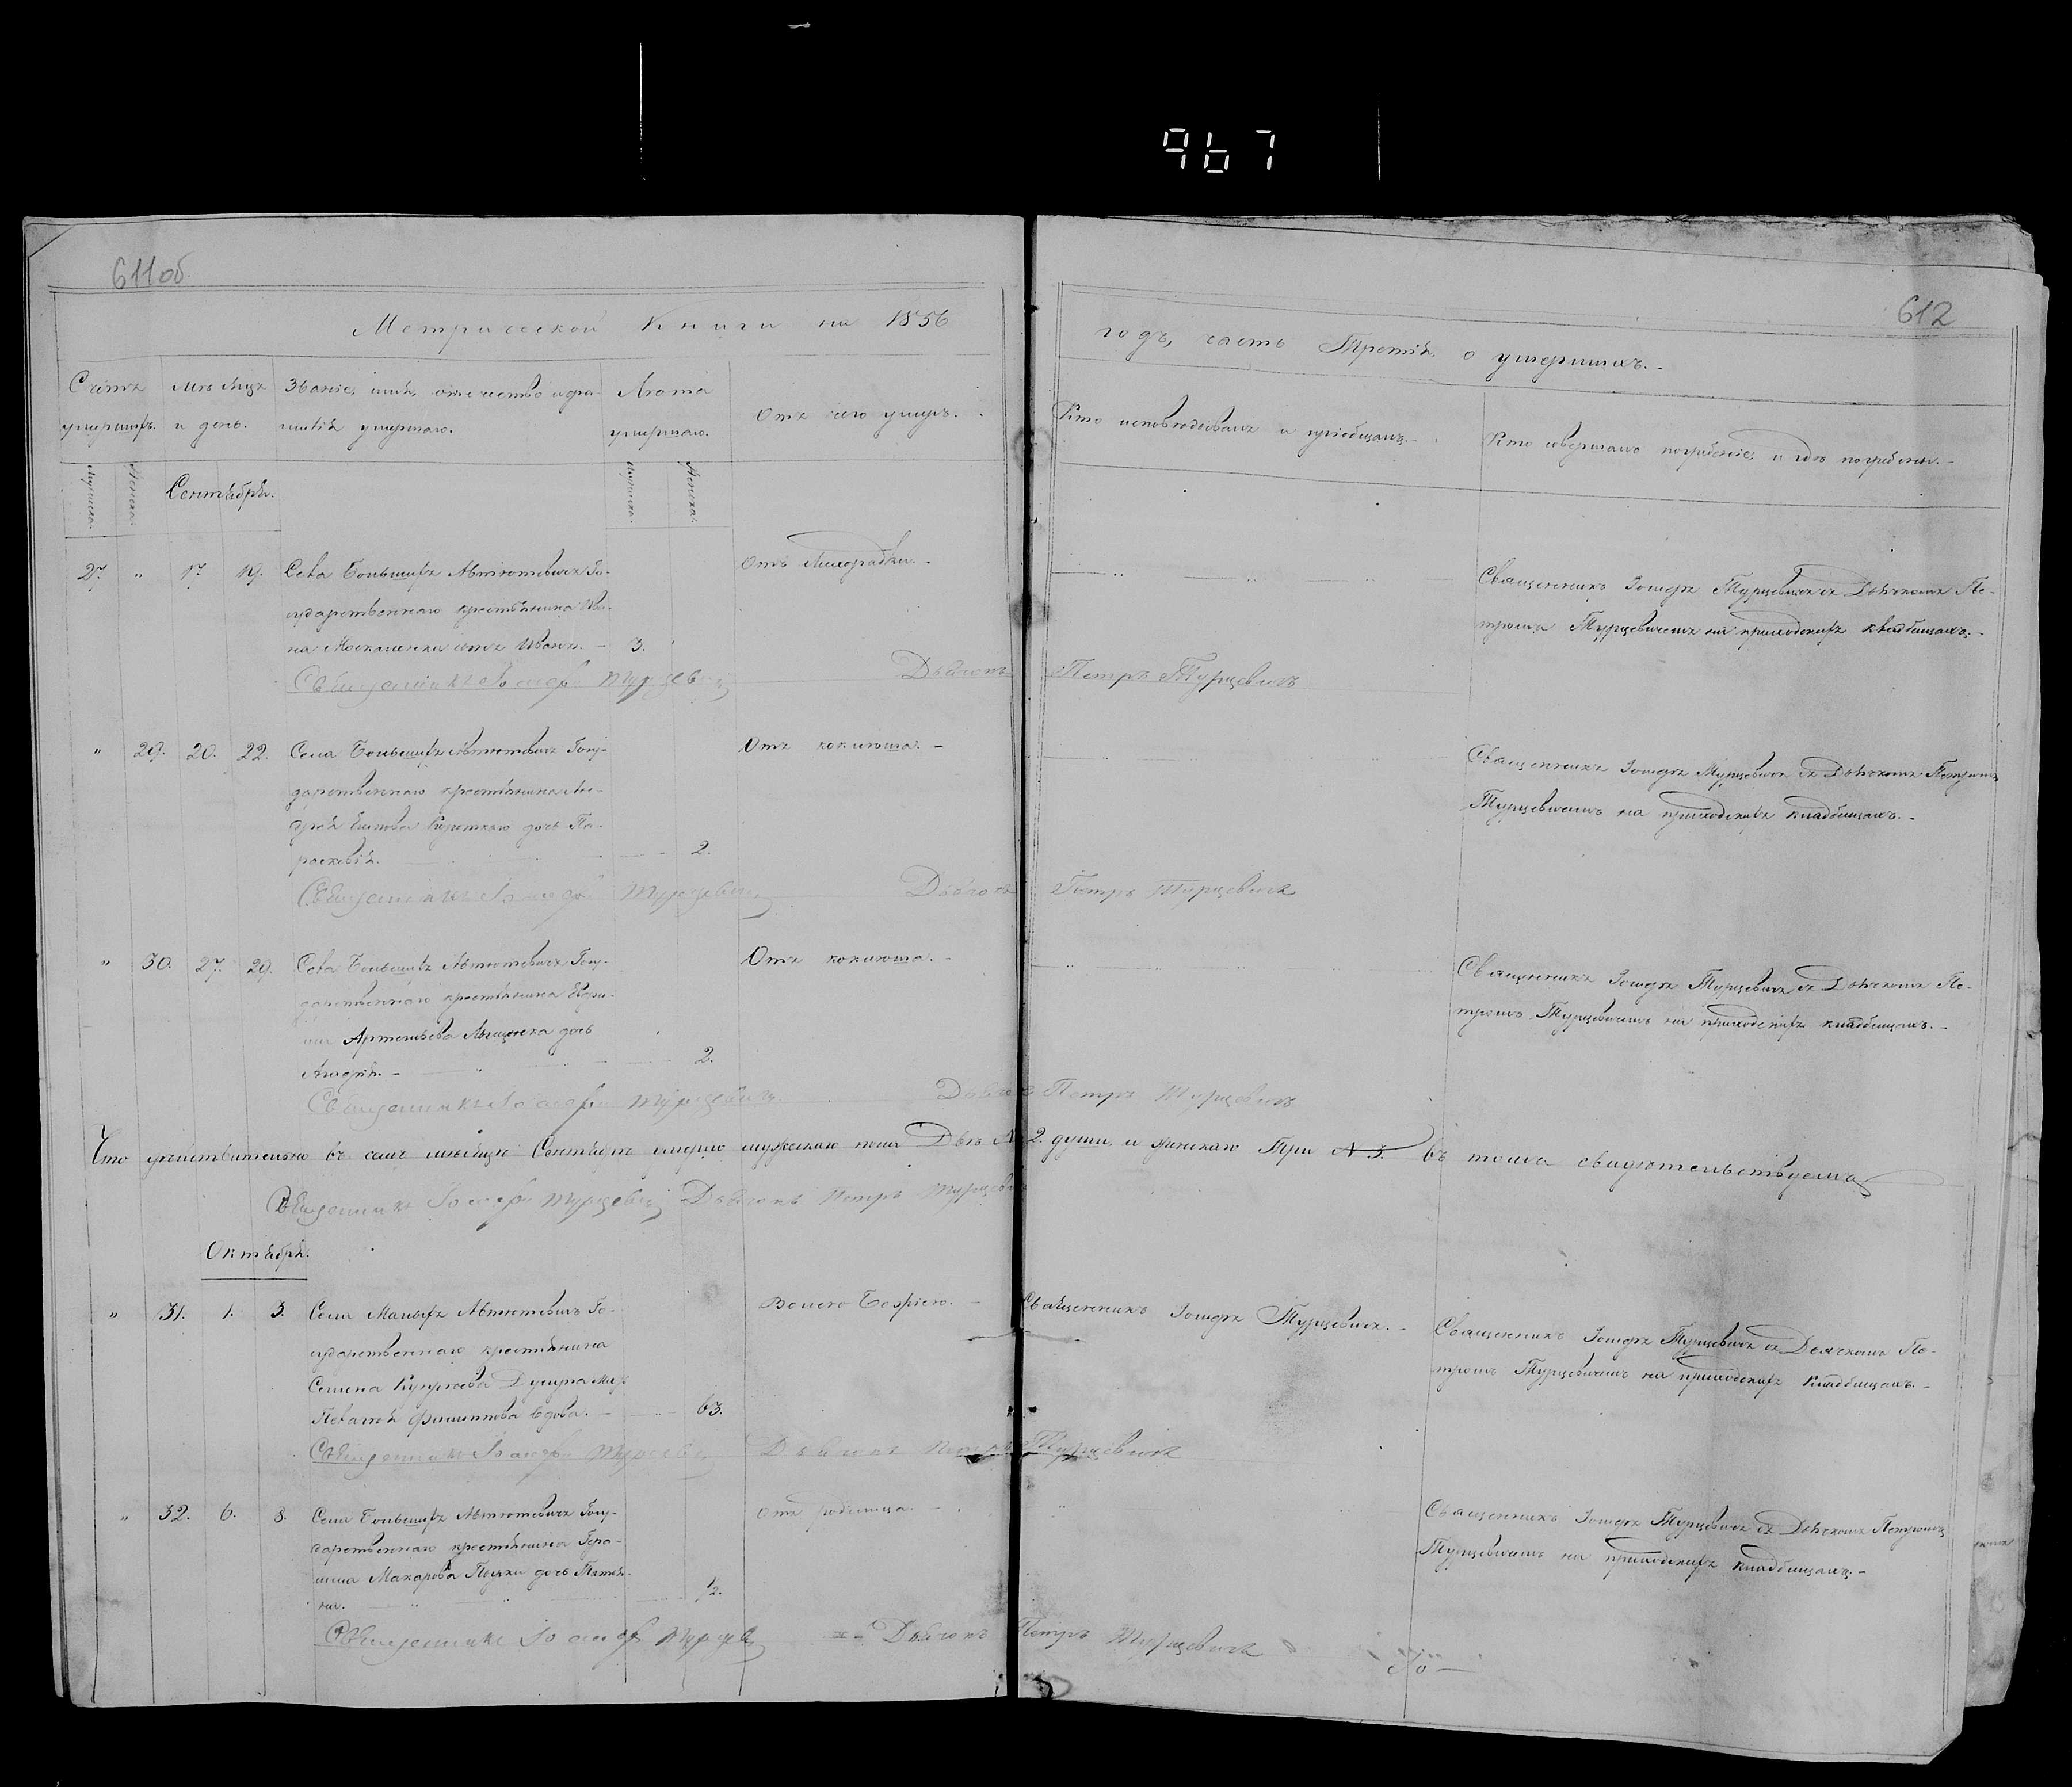 967
611об.
612
Метрической Книги на 1856
годъ, часть Третія о умершихъ.
Счетъ умершихъ.
Мѣсяцъ и день.
Званіе, имя, отечество и фамилія умершаго.
Лѣта умершаго.
Отъ чего умеръ.
Кто исповѣдывалъ и пріобщалъ.
Кто совершалъ погребеніе, и гдѣ погребены.
Мужеска.
Женска.
Сентября.
Мужеска.
Женска.
27. " 17. 19. Села Большихъ Автютевичъ Го-
сударственнаго крестьянина
на Москаленка сынъ Иванъ. – 3.
Отъ лихорадки. –
Священникъ Іосифъ Турцевичъ съ Дьячкомъ Пе-
тромъ Турцевичемъ на приходскихъ кладбищахъ. –
Священникъ Іосифъ Турцевичъ Дьячокъ Петръ Турцевичъ
" 29. 20. 22. Села Большихъ Автютевичъ Госу-
дарственнаго крестьянина Ан-
дрея Короткаго дочь Па-
раскевія. 2.
Отъ коклюша. –
Священникъ Іосифъ Турцевичъ съ Дьячкомъ Петромъ
Турцевичемъ на приходскихъ кладбищахъ. –
Священникъ Іосифъ Турцевичъ Дьячокъ Петръ Турцевичъ
" 30. 27. 29. Села Большихъ Автютевичъ Госу-
дарственнаго крестьянина
Артемьева дочь
Агафія. – 2.
Отъ коклюша. –
Священникъ Іосифъ Турцевичъ съ Дьячкомъ Пе-
тромъ Турцевичемъ на приходскихъ кладбищахъ. –
Священникъ Іосифъ Турцевичъ Дьячокъ Петръ Турцевичъ
Что дѣйствительно въ семъ мѣсяцѣ Сентябрѣ умерло мужескаго пола Двѣ № 2. души и женскаго Три № 3. въ томъ свидѣтельствуемъ
Священникъ Іосифъ Турцевичъ Дьячокъ Петръ Турцевичъ
Октября.
" 31. 1. 3. Села Малыхъ Автютевичъ Го-
сударственнаго крестьянина
Семена
Пелагея Филиппова вдова. – 63.
Священникъ Іосифъ Турцевичъ. –
Священникъ Іосифъ Турцевичъ съ Дьячкомъ Пе-
тромъ Турцевичемъ на приходскихъ кладбищахъ. –
Священникъ Іосифъ Турцевичъ Дьячокъ Петръ Турцевичъ
" 32. 6. 8. Села Большихъ Автютевичъ Госу-
дарственнаго крестьянина Гера-
сима Макарова дочь Татья-
на. 1/2.
Отъ родимца. –
Священникъ Іосифъ Турцевичъ съ Дьячкомъ Петромъ
Турцевичемъ на приходскихъ кладбищахъ. –
Священникъ Іосифъ Турцевичъ Дьячокъ Петръ Турцевичъ